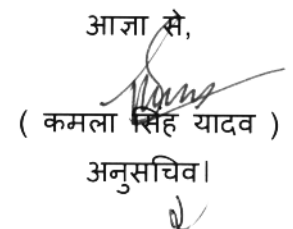 आज्ञा से,
( कमला सिंह यादव )
अनुसचिव।